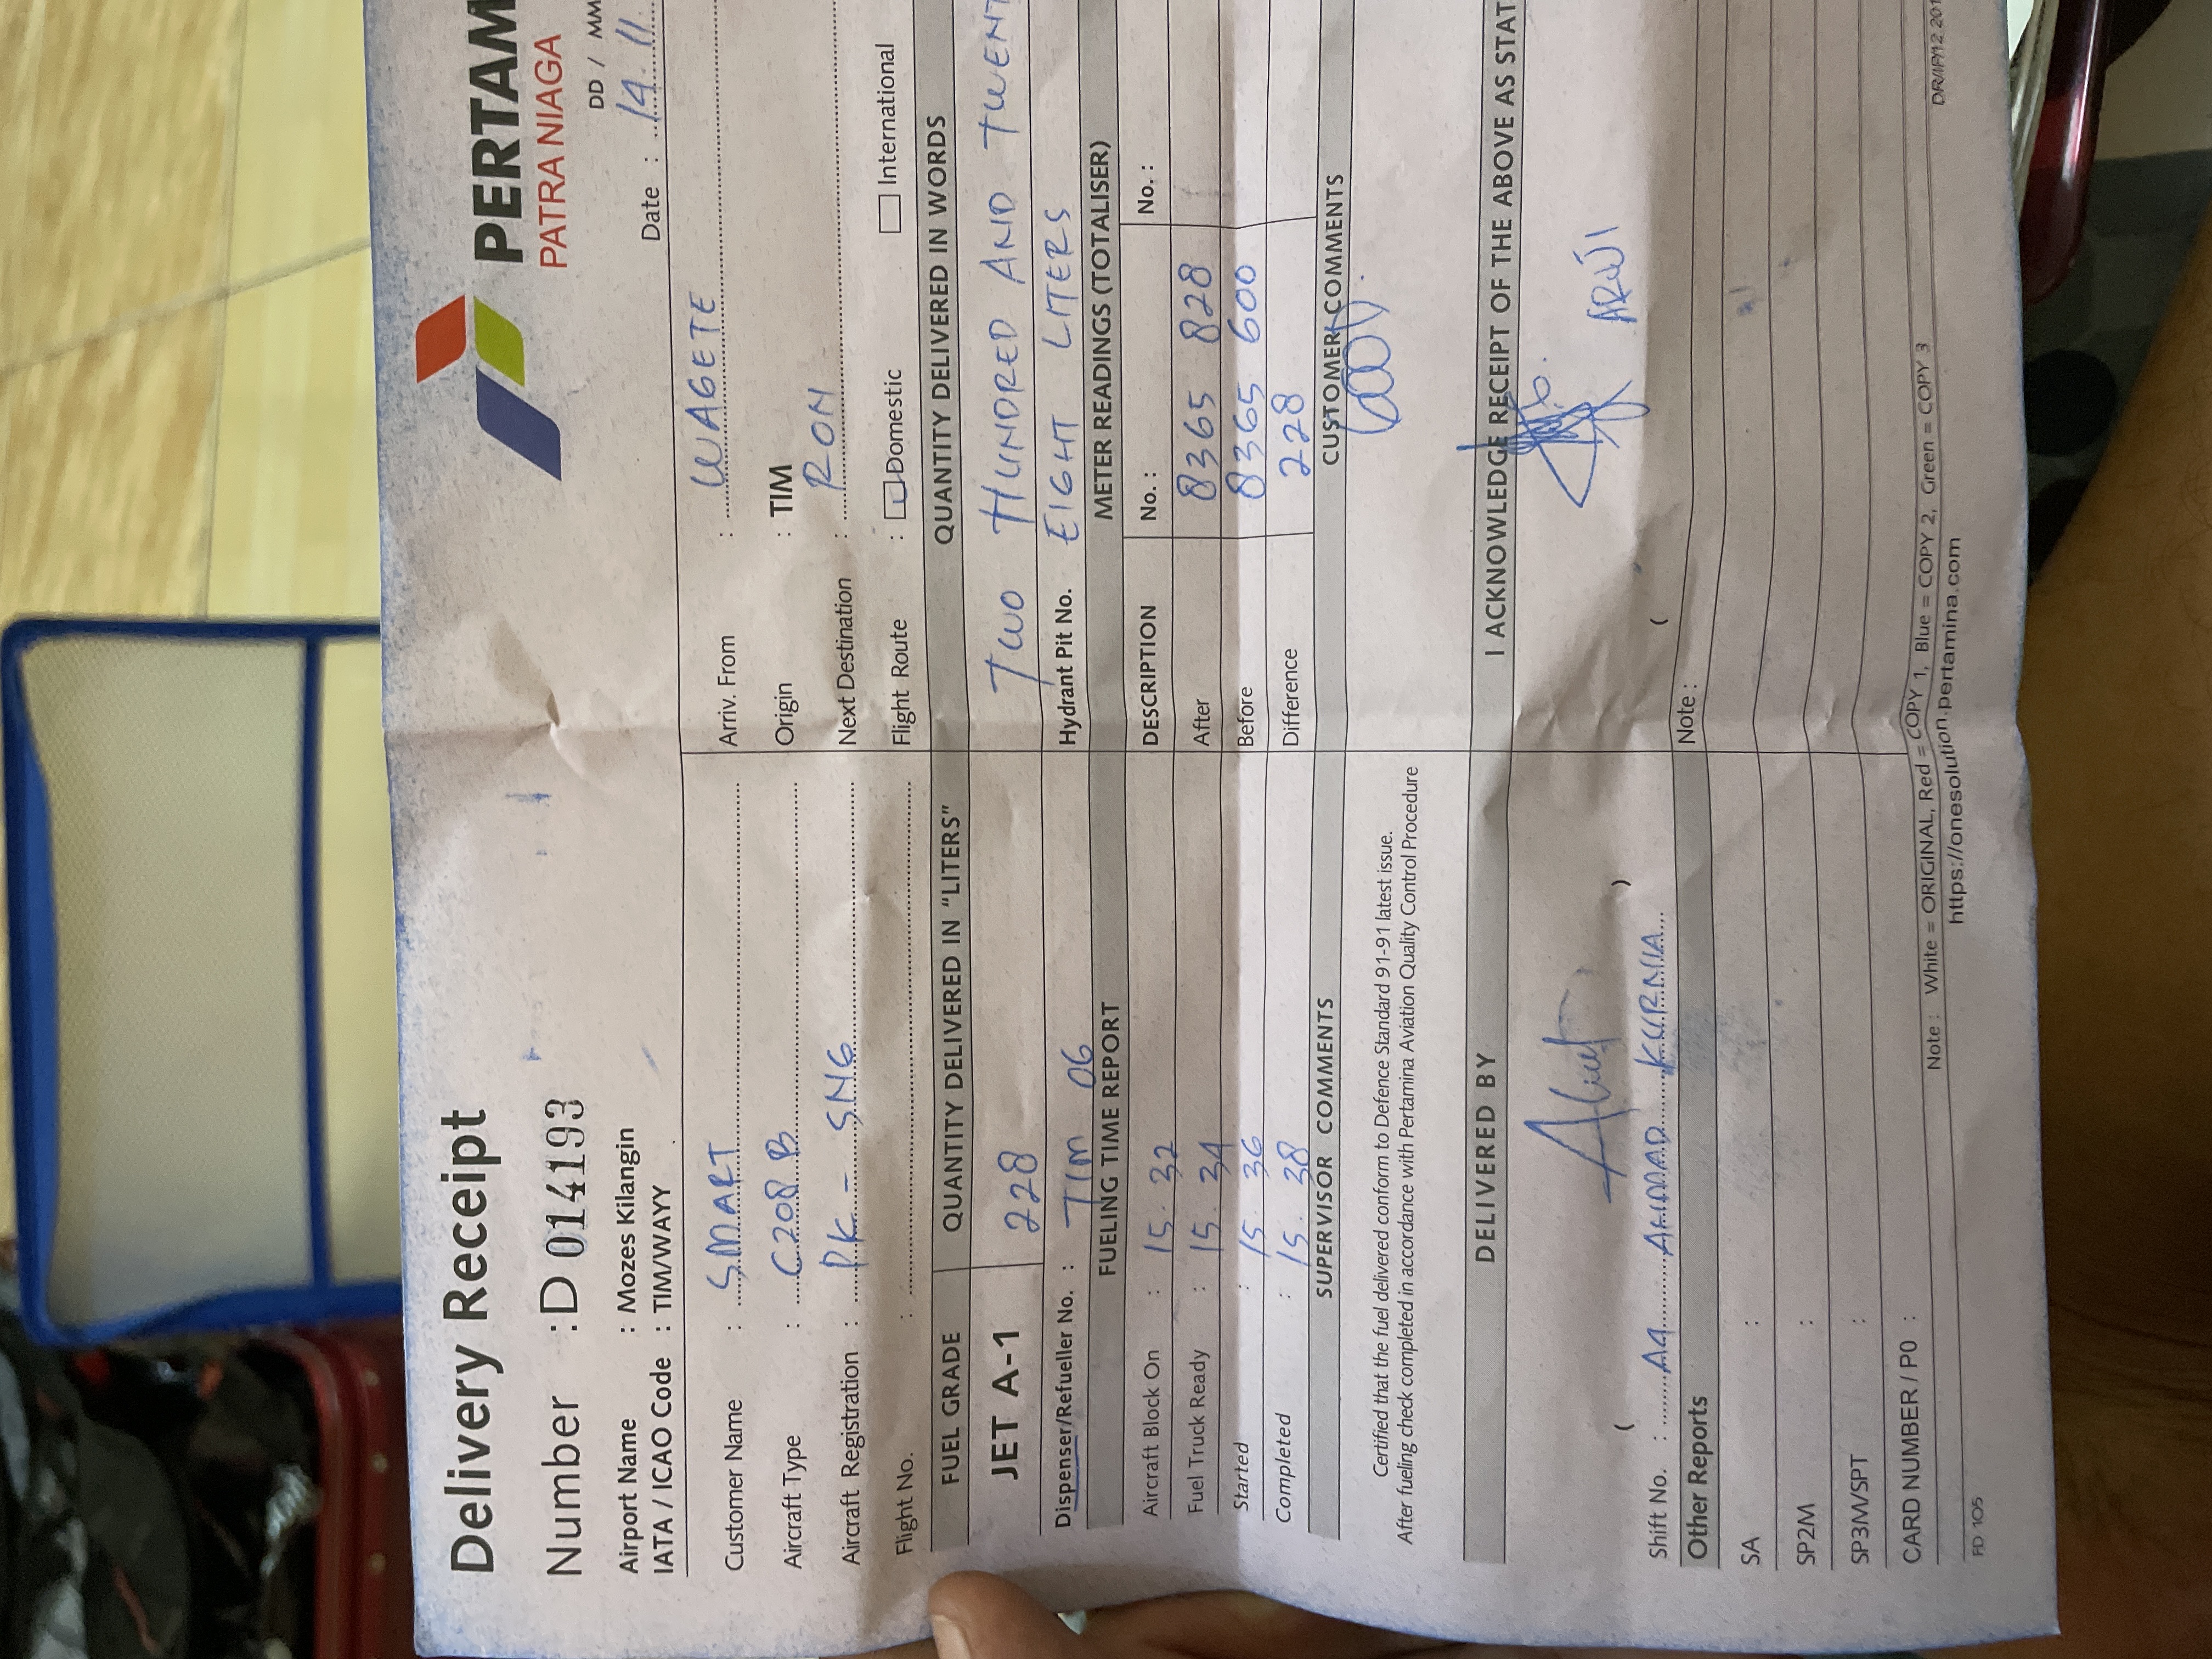 Delivery Receipt
PERTAM
PATRA NIAGA
Number : D 014193
DD / MM
Date : 14.11
Airport Name : Mozes Kilangin
IATA / ICAO Code : TIM/WAYY
Customer Name : SMART
Arriv. From : WAGETE
Aircraft Type : C208 B
Origin : TIM
Aircraft Registration : PK - SNG
Next Destination : RON
Flight No. :
Flight Route : Domestic International
FUEL GRADE QUANTITY DELIVERED IN "LITERS" QUANTITY DELIVERED IN WORDS
JET A-1 228 TWO HUNDRED AND TWENT
Dispenser/Refueller No. : TIM 06 Hydrant Pit No. EIGHT LITERS
FUELING TIME REPORT METER READINGS (TOTALISER)
DESCRIPTION No. : No. :
Aircraft Block On : 15. 32
Fuel Truck Ready : 15. 34 After 8365 828
Started : 15. 36 Before 8365 600
Completed : 15. 38 Difference 228
SUPERVISOR COMMENTS CUSTOMER COMMENTS
Certified that the fuel delivered conform to Defence Standard 91-91 latest issue.
After fueling check completed in accordance with Pertamina Aviation Quality Control Procedure
DELIVERED BY I ACKNOWLEDGE RECEIPT OF THE ABOVE AS STAT
ARUJI
( ) (
Shift No. : A4 AHMAD KURNIA
Other Reports Note :
SA :
SP2M :
SP3M/SPT :
CARD NUMBER / P0 :
Note : White = ORIGINAL, Red = COPY 1, Blue = COPY 2, Green = COPY 3
https://onesolution.pertamina.com
FD 105